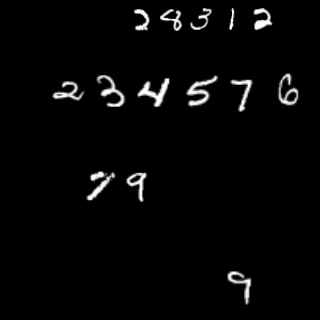 28312
234576
79
9